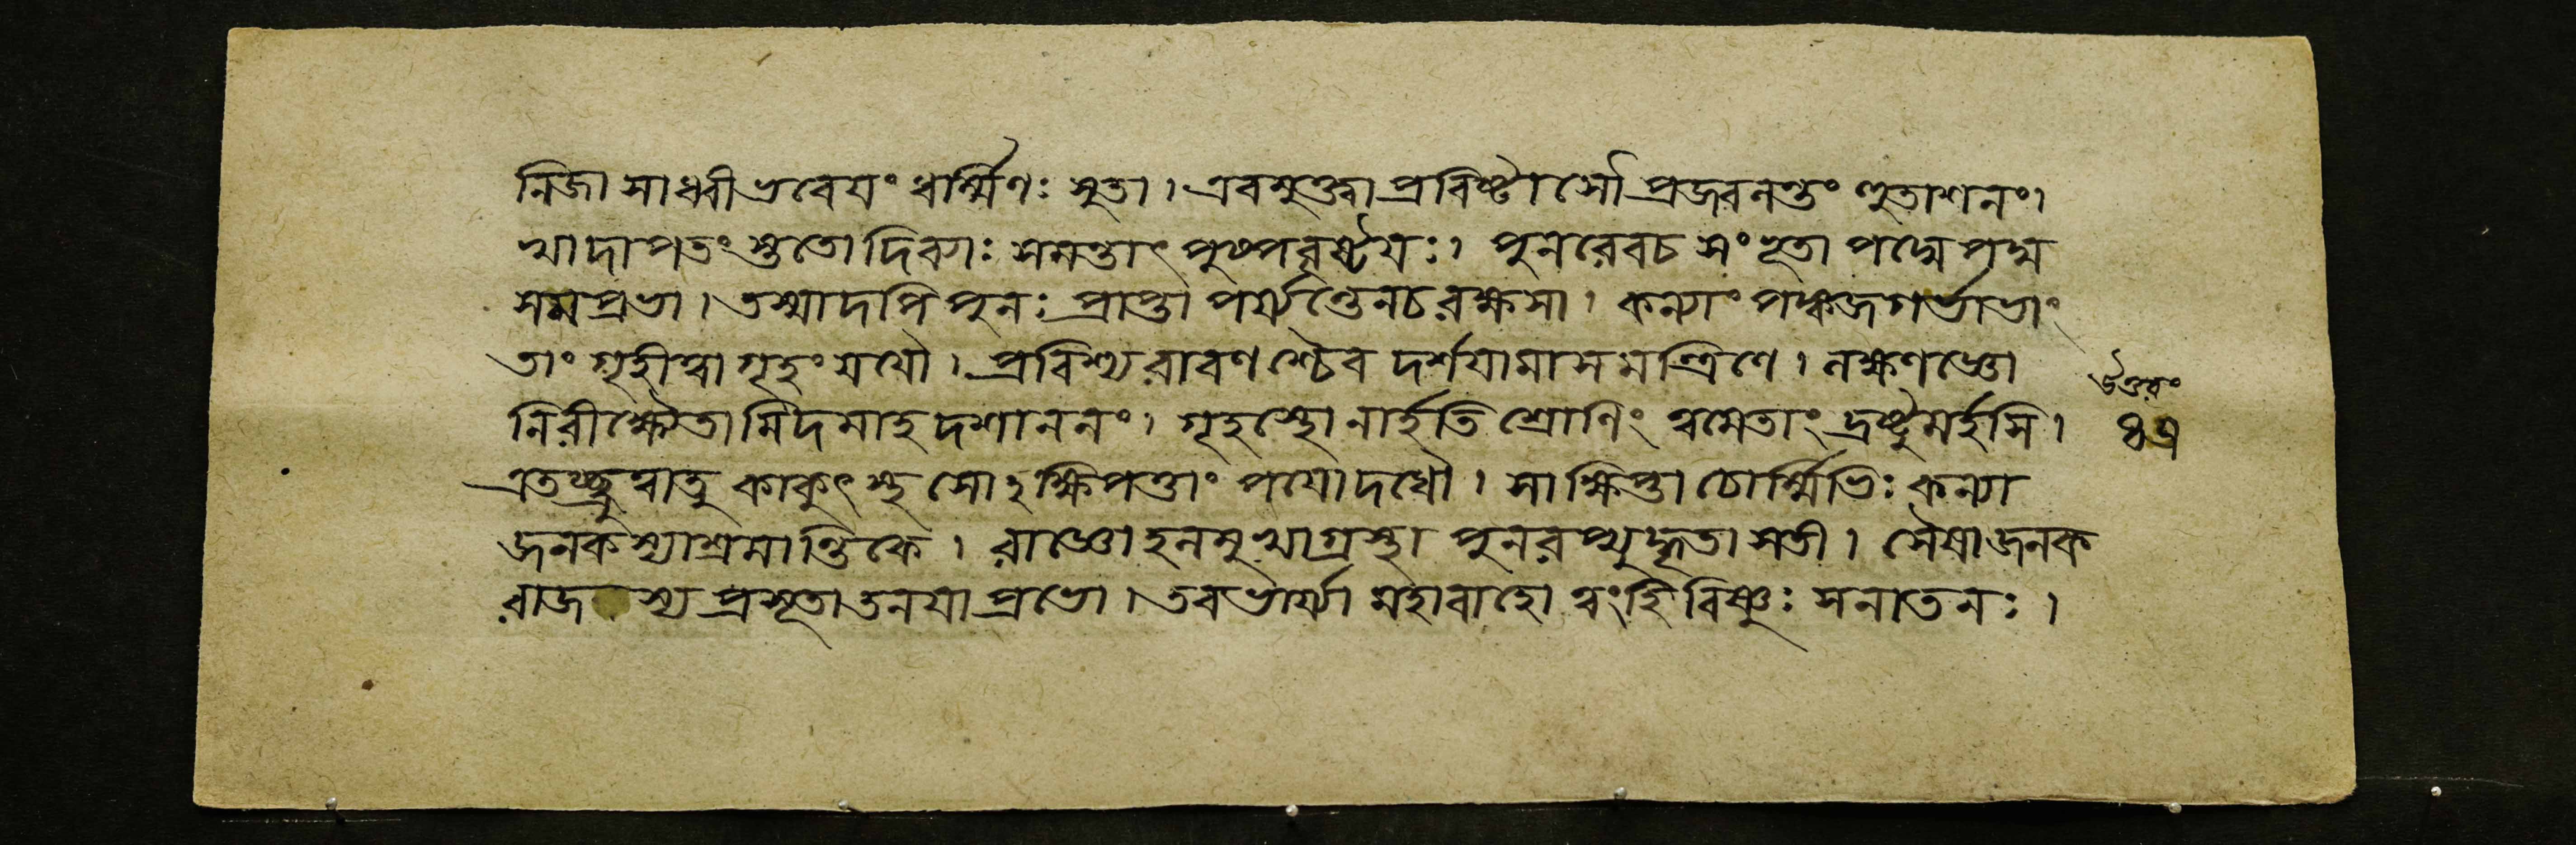 নিজা সাধ্বী ভবেযং ধর্ম্মিণঃ সুতা । এবমুক্ত্বা প্রবিষ্টাসৌ প্রজ্বলন্তং হুতাশনং ।
খাদাপতংস্ততো দিব্যাঃ সমন্তাৎ পুষ্পবৃষ্টযঃ । পুনরেবচ সংভূতা পদ্মে পদ্ম
সমপ্রভা । তস্মাদপি পুনঃ প্রাপ্তা পর্য্যন্তেনচ রক্ষসা । কন্যাং পঙ্কজগর্ভাভাং
তাং গৃহীত্বা গৃহং যযৌ । প্রবিশ্য রাবণশ্চৈব দর্শযামাস মন্ত্রিণে । লক্ষণজ্ঞো
নিরীক্ষ্যৈতামিদমাহ দশাননং । গৃহস্থো নার্হতি শ্রোণিং ত্বমেতাং দ্রষ্টুমর্হসি ।
এতচ্ছ্রুত্বাতু কাকুৎস্থ সোঽক্ষিপত্তাং পযোদধৌ । সা ক্ষিপ্তা চোর্ম্মিভিঃ কন্যা
জনকস্যাশ্রমান্তিকে । রাজ্ঞো হলমুখাগ্রস্থা পুনরপ্যুদ্ধৃতা সতী । সৈষা জনক
রাজস্য প্রসূতা তনযা প্রভো । তব ভার্য্যা মহাবাহো ত্বংহি বিষ্ণুঃ সনাতনঃ ।
উত্তরং